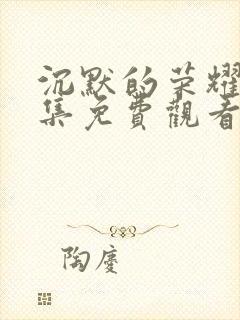 沉默的荣耀
集免費觀看
陶慶